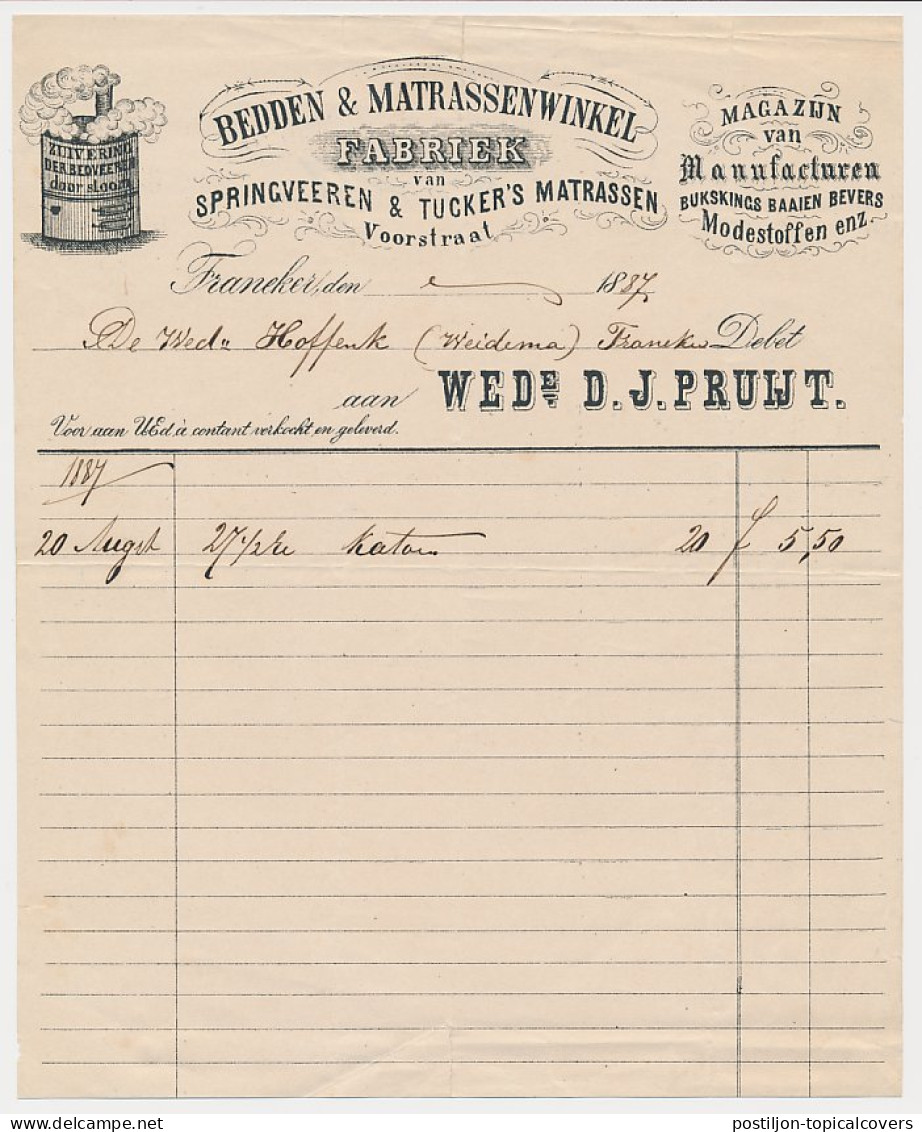 ZUIVERING
DER BEDVEEREN
door stoom
BEDDEN & MATRASSENWINKEL
FABRIEK
van
SPRINGVEEREN & TUCKER'S MATRASSEN
Voorstraat
MAGAZIJN
van
Manufacturen
BUKSKINGS BAAIEN BEVERS
Modestoffen enz.
Franeker, den 1887
De Wed. Hoffenk (Weidema) Franeker Debet
aan WEDE D. J. PRUIJT.
Voor aan UEd à contant verkocht en geleverd.
1887
20 Augst 27 1/2 El katoen 20 f 5,50
delcampe.net
postiljon-topicalcovers